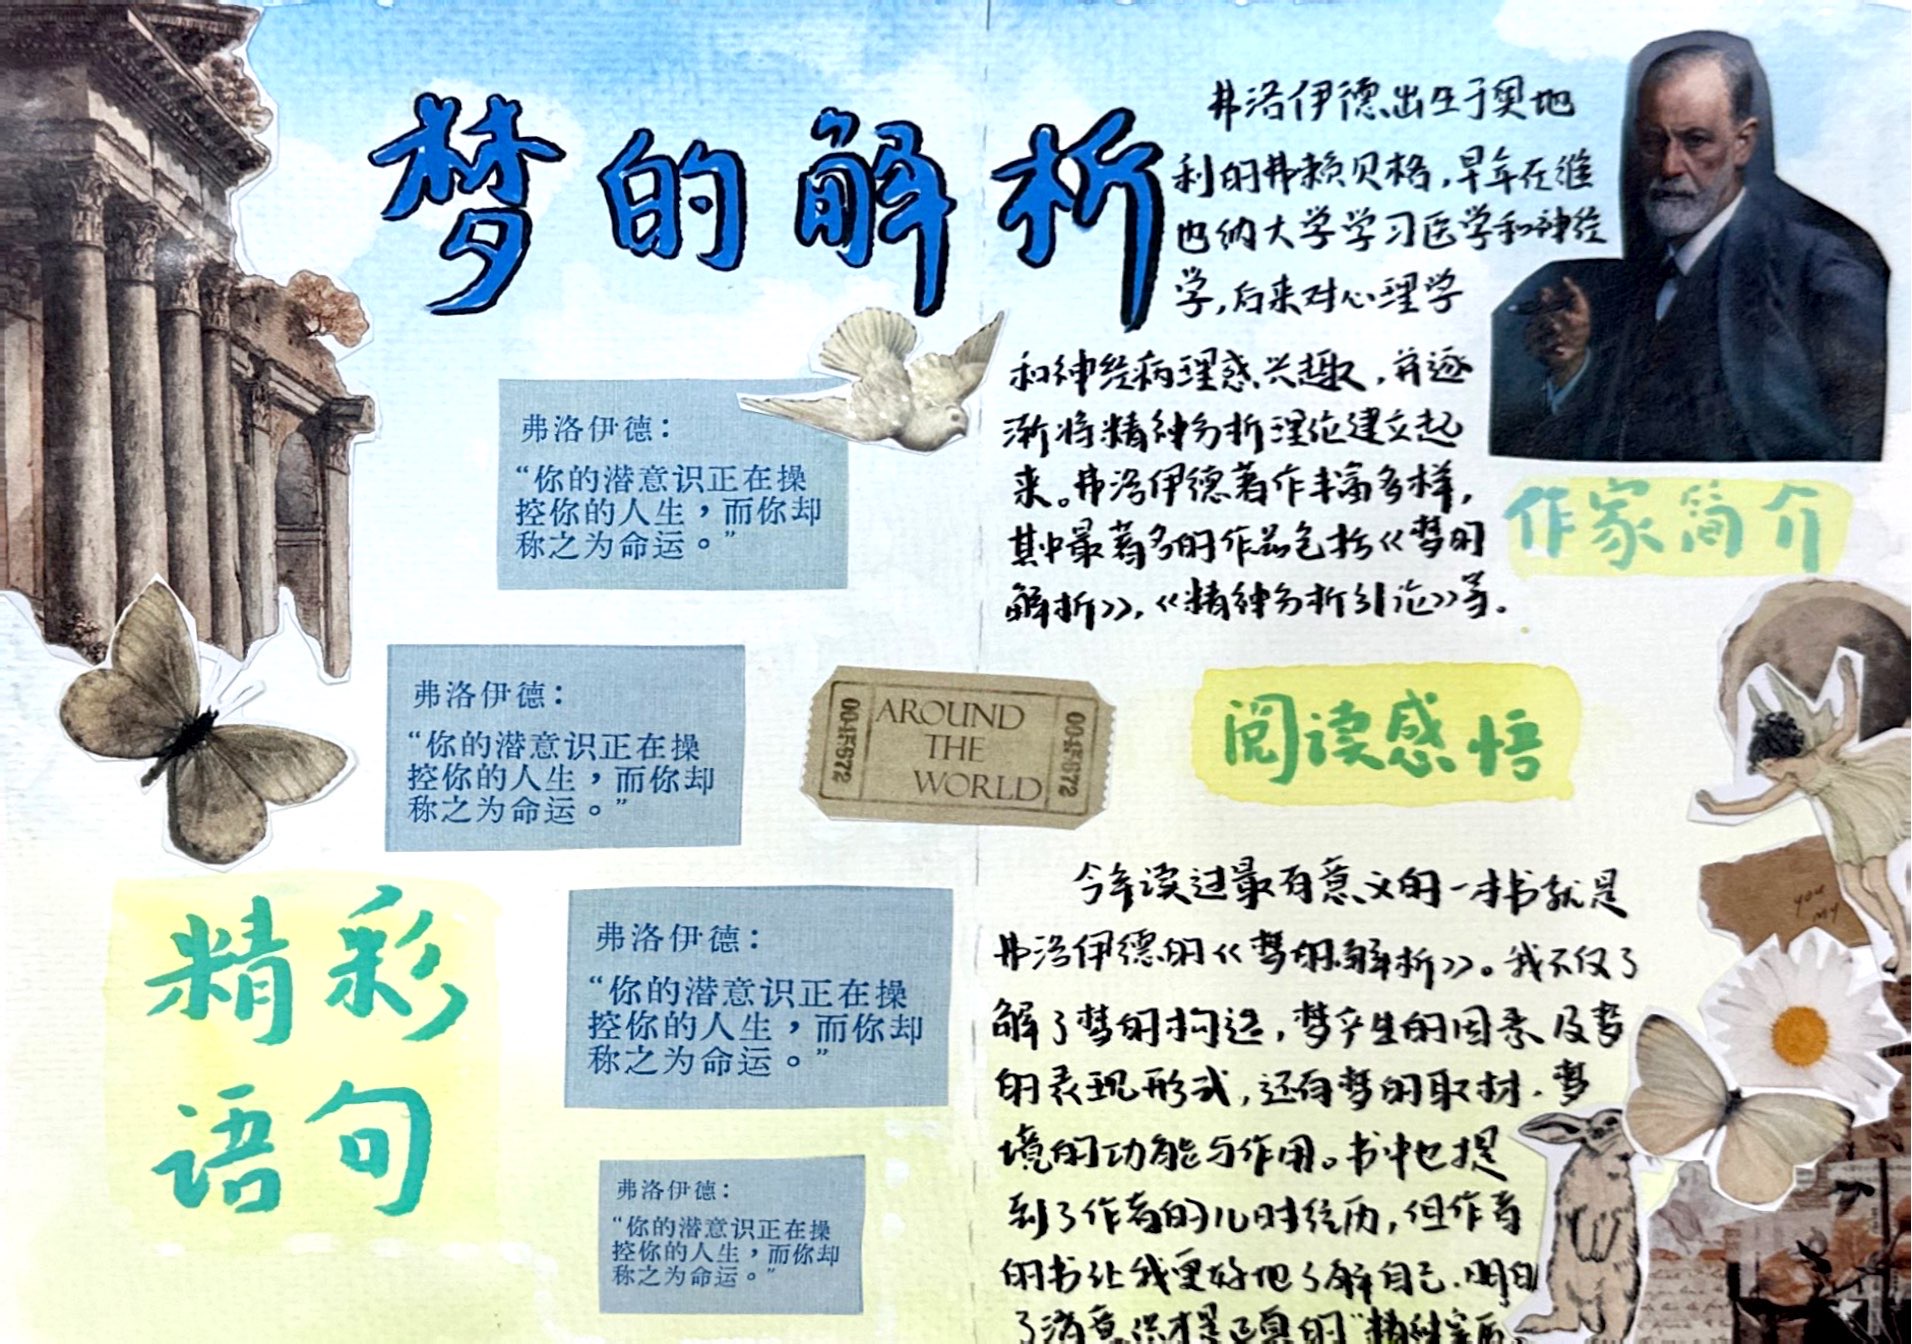 梦的解析
弗洛伊德出生于奥地
利的弗赖贝格,早年在维
也纳大学学习医学和神经
学,后来对心理学
和神经病理感兴趣,并逐
渐将精神分析理论建立起
来。弗洛伊德著作丰富多样,
其中最著名的作品包括《梦的
解析》,《精神分析引论》等。
作家简介
弗洛伊德：
“你的潜意识正在操
控你的人生，而你却
称之为命运。”
弗洛伊德：
“你的潜意识正在操
控你的人生，而你却
称之为命运。”
AROUND
THE
WORLD
0045672
0045672
阅读感悟
精彩
语句
弗洛伊德：
“你的潜意识正在操
控你的人生，而你却
称之为命运。”
弗洛伊德：
“你的潜意识正在操
控你的人生，而你却
称之为命运。”
今年读过最有意义的一本书就是
弗洛伊德的《梦的解析》。我不仅了
解了梦的构造,梦产生的因素及梦
的表现形式,还有梦的取材.梦
境的功能与作用。书中也提
到了作者的儿时经历,但作者
的书让我更好地了解自己.明白
了潜意识才是真的“精神
you
my